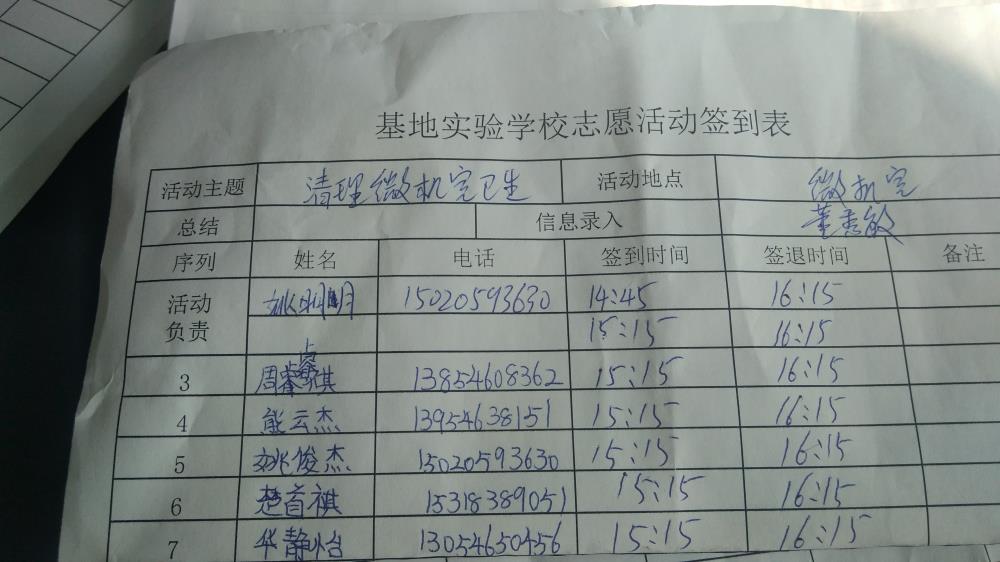 基地实验学校志愿活动签到表
活动主题 清理微机室卫生 活动地点 微机室
总结 信息录入 董秀敏
序列 姓名 电话 签到时间 签退时间 备注
活动负责 姚明月 15020593630 14:45 16:15
15:15 16:15
3 周睿琪 13854608362 15:15 16:15
4 能云杰 13954638151 15:15 16:15
5 姚俊杰 15020593630 15:15 16:15
6 楚首祺 15318389051 15:15 16:15
7 华静怡 13054650456 15:15 16:15